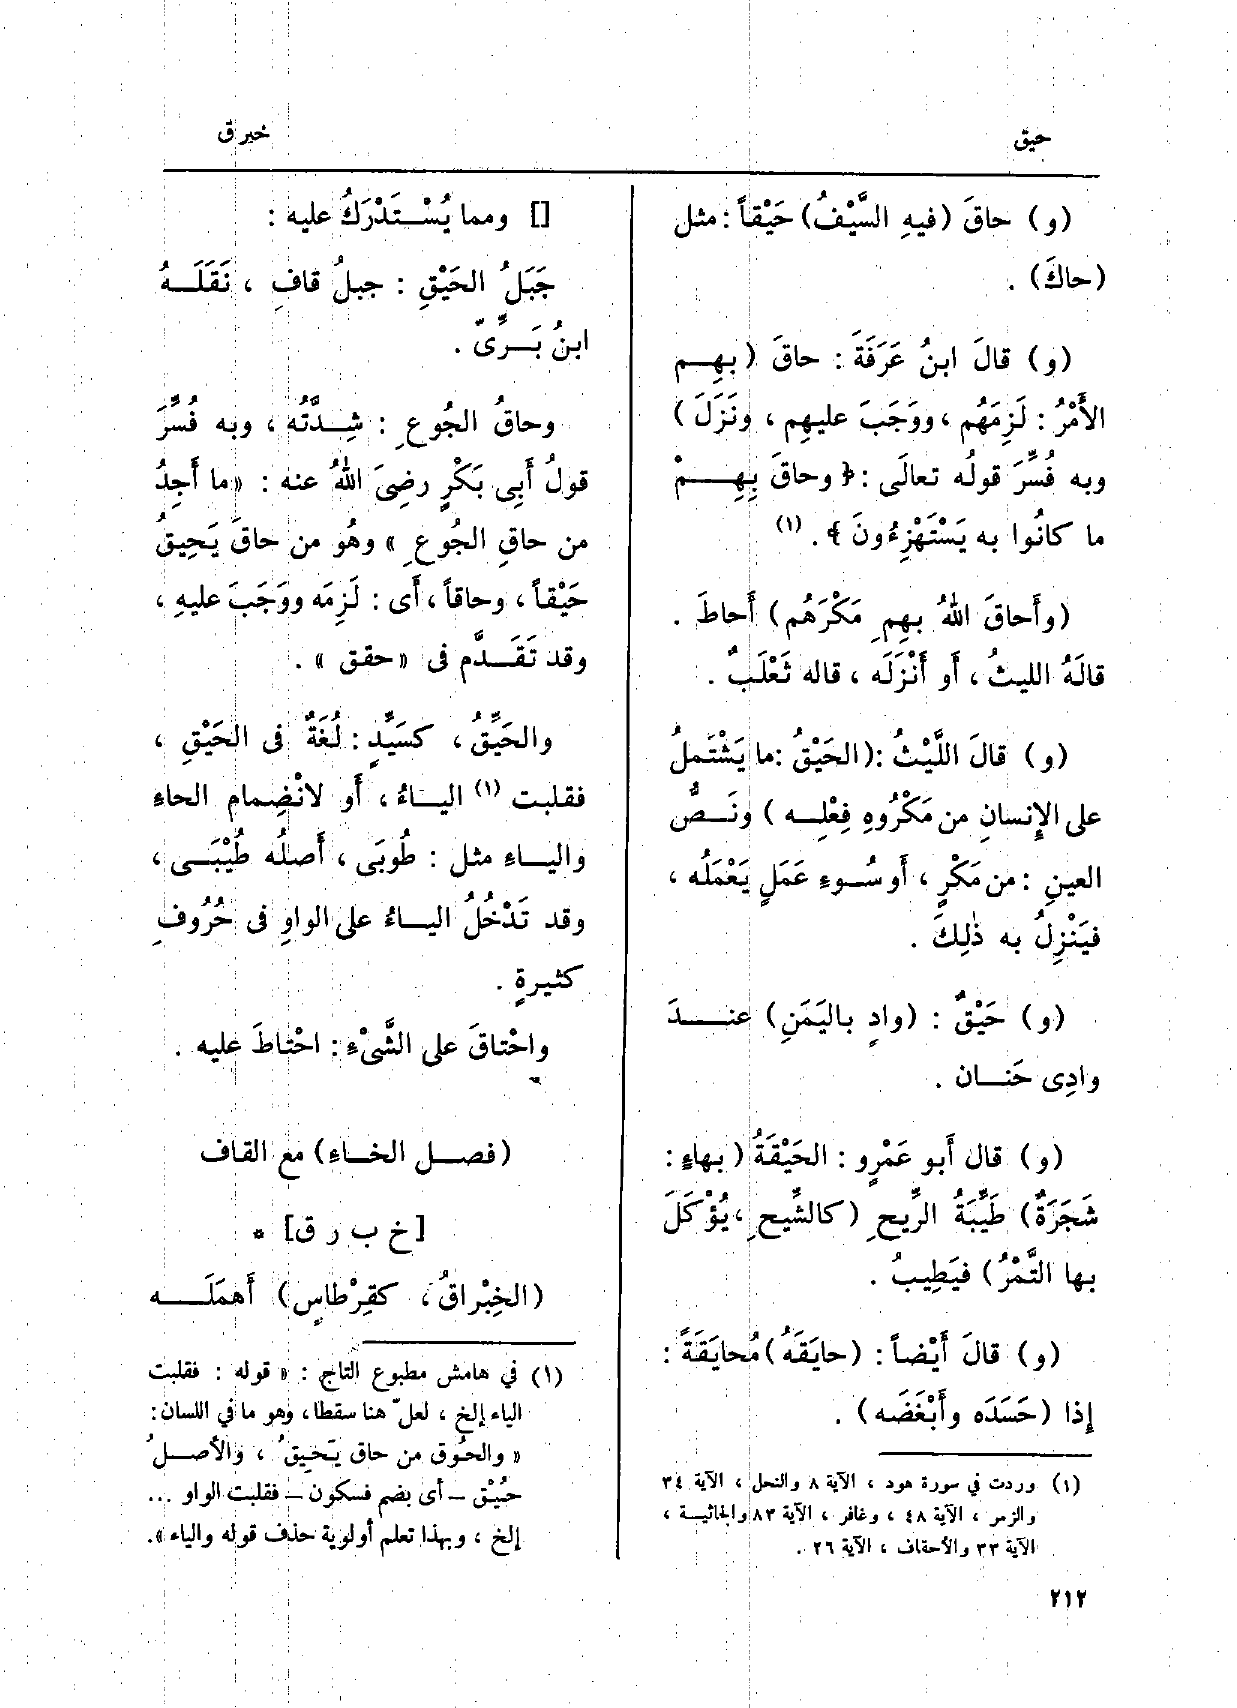 حيق
خبرق
(و) حاقَ (فيهِ السَّيْفُ) حَيْقاً : مثل
(حاكَ) .
(و) قالَ ابنُ عَرَفَةَ : حاقَ (بهِم
الأَمْرُ : لَزِمَهُم ، ووَجَبَ عليهِم ، ونَزَلَ)
وبه فُسِّرَ قولُه تعالَى : ﴿وحاقَ بِهِمْ
ما كانُوا به يَسْتَهْزِءُونَ﴾ . (١)
(وأَحاقَ اللهُ بهِم ِ مَكْرَهُم) أَحاطَ .
قالَهُ الليثُ ، أَو أَنْزَلَه ، قاله ثَعْلَبٌ .
(و) قالَ اللَّيْثُ : (الحَيْقُ : ما يَشْتَمِلُ
على الإِنسانِ من مَكْرُوهِ فِعْلِه ) ونَصُّ
العينِ : من مَكْرٍ ، أَو سُوءِ عَمَلٍ يَعْمَلُه ،
فيَنْزِلُ به ذٰلِكَ .
(و) حَيْقٌ : (وادٍ باليَمَنِ) عندَ
وادِى حَنان .
(و) قال أَبو عَمْرٍو : الحَيْقَةُ (بهاءٍ :
شَجَرَةٌ) طَيِّبَةُ الرِّيح ِ (كالشِّيح ِ ، يُؤْكَلَ
بها التَّمْرُ) فيَطِيبُ .
(و) قالَ أَيْضاً : (حايَقَهُ) مُحايَقَةً :
إِذا (حَسَدَه وأَبْغَضَه) .
(١) وردت في سورة هود ، الآية ٨ والنحل ، الآية ٣٤
والزمر ، الآية ٤٨ ، وغافر ، الآية ٨٣ والجاثية ،
الآية ٣٣ والأحقاف ، الآية ٢٦ .
[] ومما يُسْتَدْرَكُ عليه :
جَبَلُ الحَيْقِ : جبلُ قافِ ، نَقَلَهُ
ابنُ بَرِّىّ .
وحاقُ الجُوع ِ : شِدَّتُه ، وبه فُسِّرَ
قولُ أَبِى بَكْرٍ رضِىَ اللهُ عنه : «ما أَجِدُ
من حاقِ الجُوع ِ» وهُو من حاقَ يَحِيقُ
حَيْقاً ، وحاقاً ، أَى : لَزِمَه ووَجَبَ عليهِ ،
وقد تَقَدَّم فى «حقق» .
والحَيِّقُ ، كسَيِّدٍ : لُغَةٌ فى الحَيْقِ ،
فقلبت (١) الياءُ ، أَو لانْضِمام الحاءِ
والياءِ مثل : طُوبَى ، أَصلُه طُيْبَى ،
وقد تَدْخُلُ الياءُ على الواوِ فى حُرُوفٍ
كثيرةٍ .
واحْتاقَ على الشَّىْءِ : احْتاطَ عليه .
(فصل الخاءِ) مع القاف
[خ ب ر ق] *
(الخِبْراقُ ، كقِرْطاسٍ) أَهمَلَه
(١) في هامش مطبوع التاج : « قوله : فقلبت
الياء إلخ ، لعلّ هنا سقطا ، وهو ما في اللسان :
« والحُوق من حاق يَحِيقُ ، والأصلُ
حُيْق – أى بضم فسكون – فقلبت الواو ...
إلخ ، وبهذا تعلم أولوية حذف قوله والياء » .
٢١٢